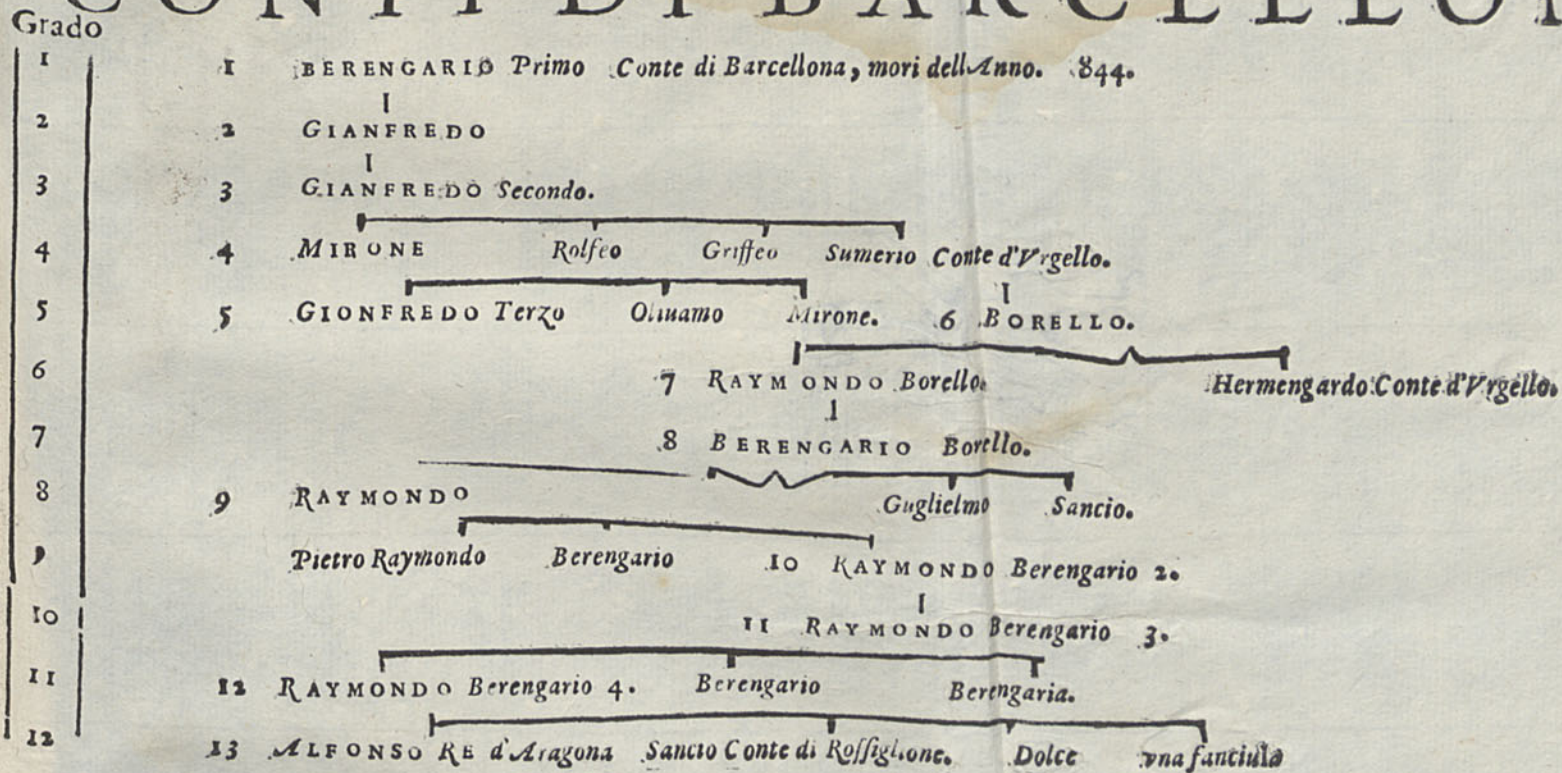 CONTI DI BARCELLON
Grado
1 1 BERENGARIO Primo Conte di Barcellona, mori dell Anno. 844.
2 2 GIANFREDO
3 3 GIANFREDO Secondo.
4 4 MIRONE Rolfeo Griffeo Sumerio Conte d'Vrgello.
5 5 GIONFREDO Terzo Oliuamo Mirone. 6 BORELLO.
6 7 RAYMONDO Borello. Hermengardo Conte d'Vrgello.
7 8 BERENGARIO Borello.
8 9 RAYMONDO Guglielmo Sancio.
9 Pietro Raymondo Berengario 10 RAYMONDO Berengario 2.
10 11 RAYMONDO Berengario 3.
11 12 RAYMONDO Berengario 4. Berengario Berengaria.
12 13 ALFONSO RE d'Aragona Sancio Conte di Rossiglione. Dolce vna fanciula